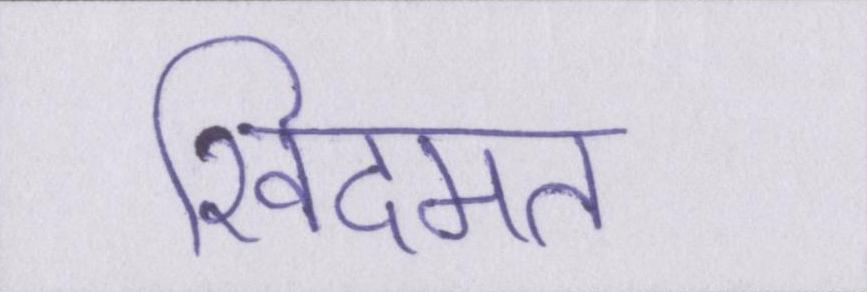 खिदमत